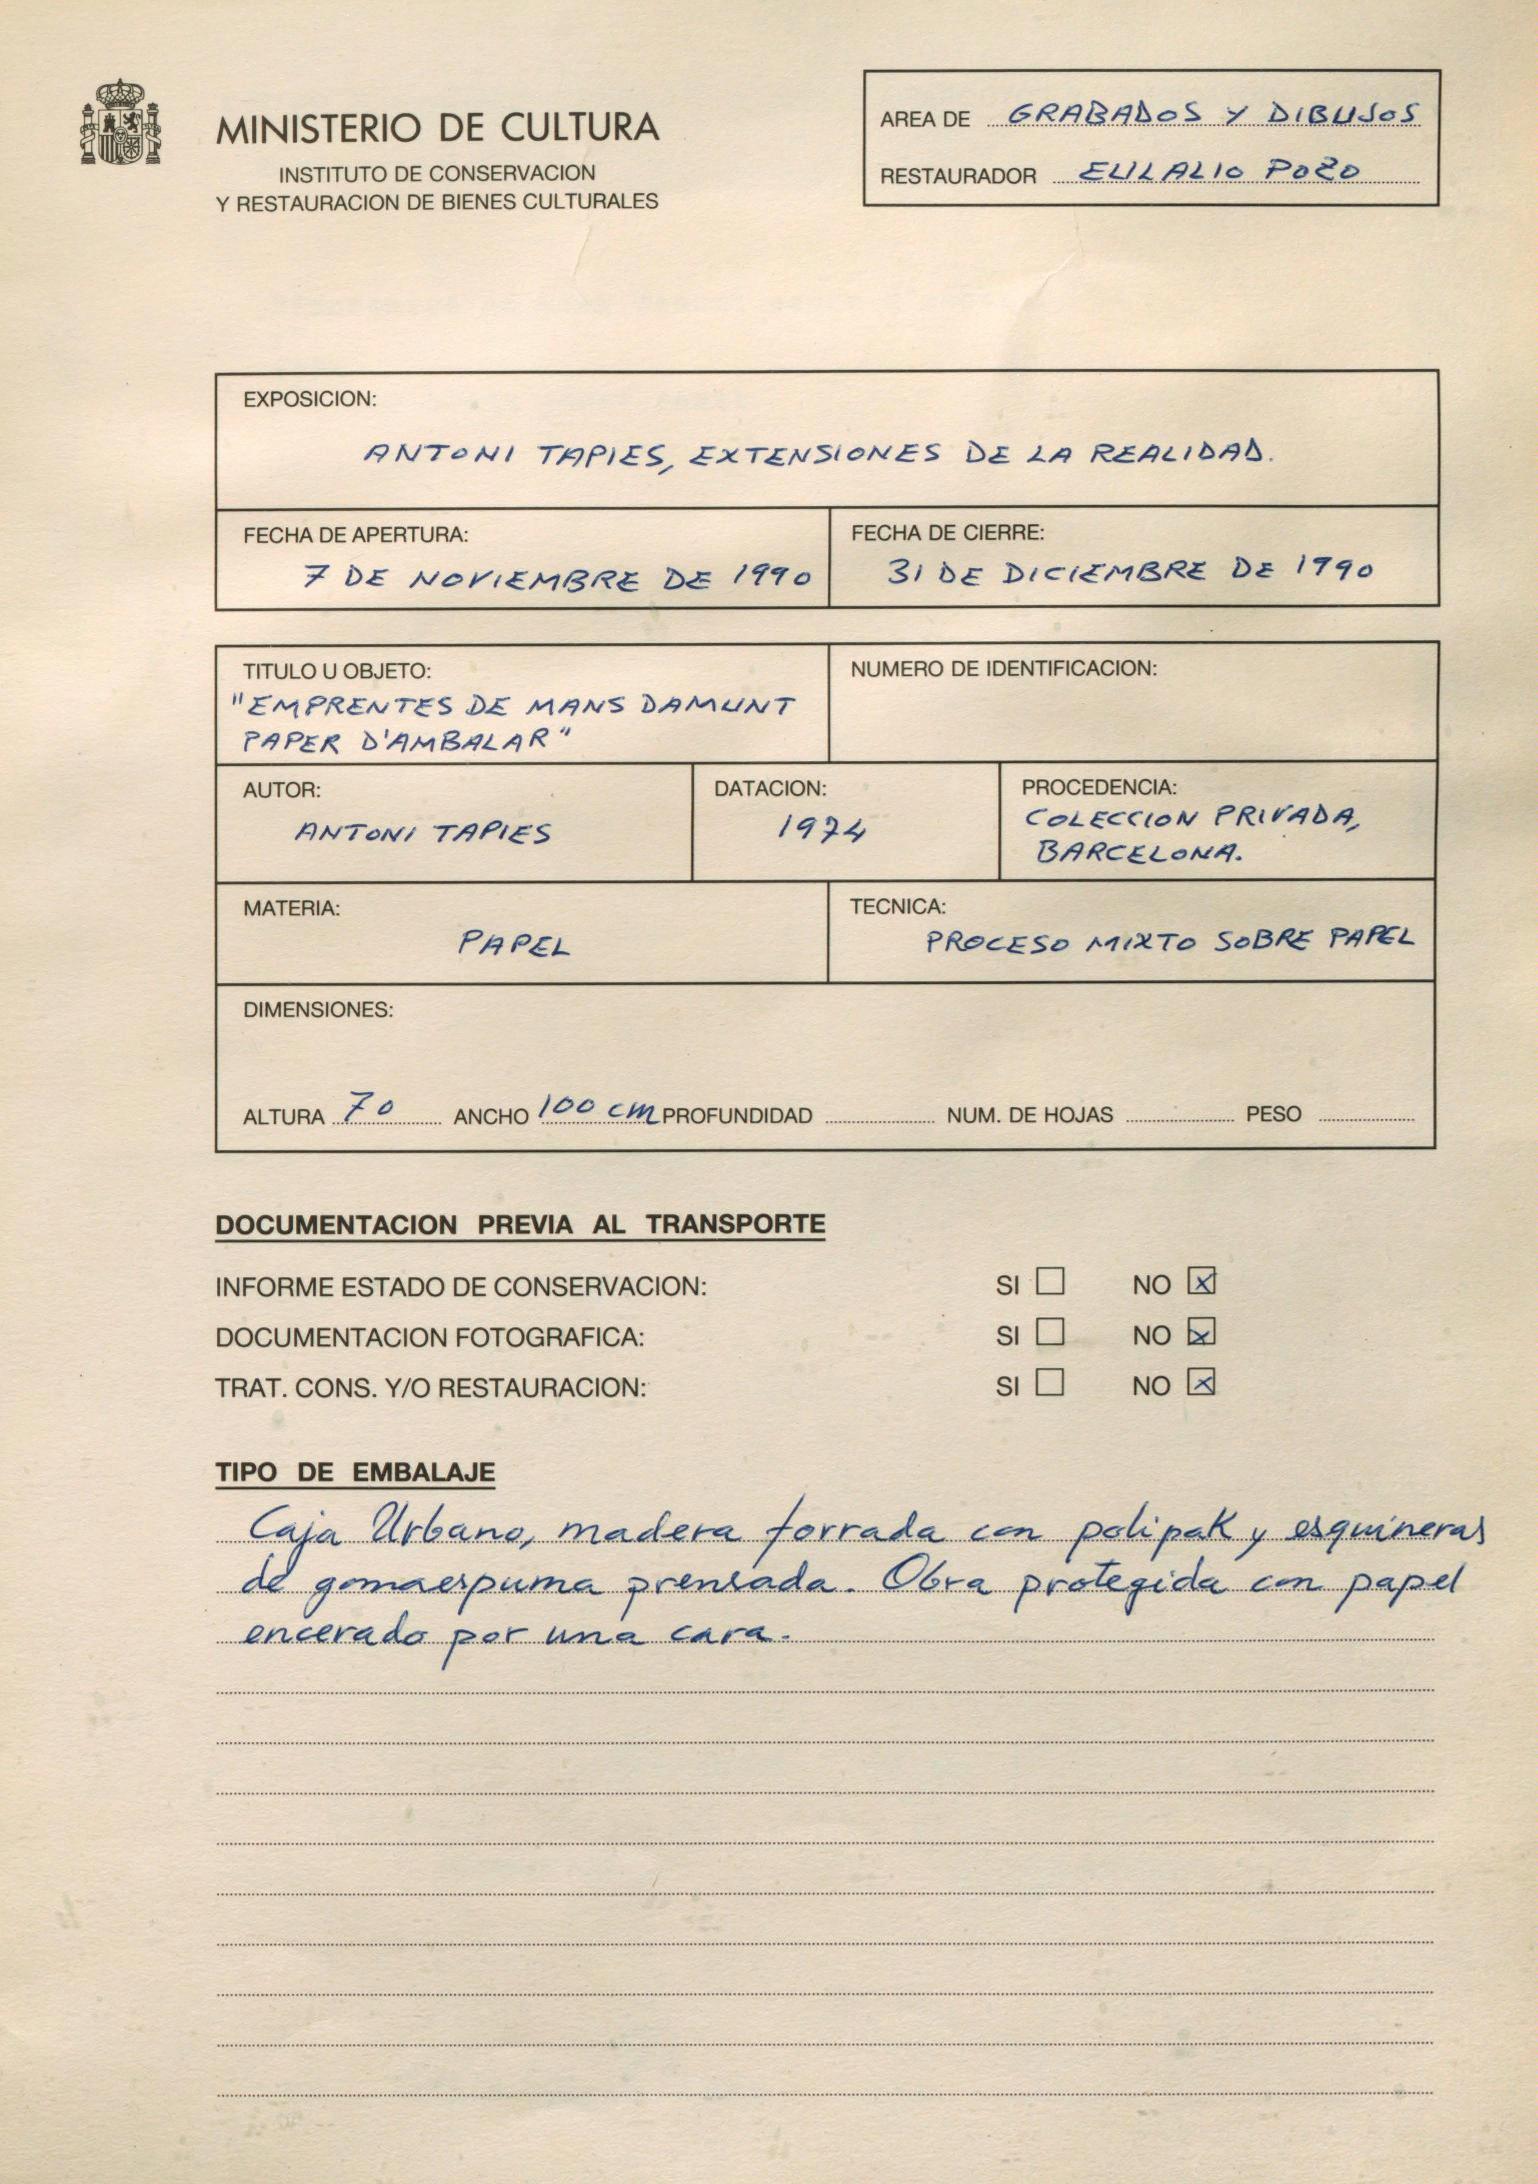 MINISTERIO DE CULTURA
INSTITUTO DE CONSERVACION
Y RESTAURACION DE BIENES CULTURALES
AREA DE GRABADOS Y DIBUJOS
RESTAURADOR EULALIO POZO
EXPOSICION:
ANTONI TAPIES, EXTENSIONES DE LA REALIDAD.
FECHA DE APERTURA:
7 DE NOVIEMBRE DE 1990
FECHA DE CIERRE:
31 DE DICIEMBRE DE 1990
TITULO U OBJETO:
"EMPRENTES DE MANS DAMUNT
PAPER D'AMBALAR"
NUMERO DE IDENTIFICACION:
AUTOR:
ANTONI TAPIES
DATACION:
1974
PROCEDENCIA:
COLECCION PRIVADA,
BARCELONA.
MATERIA:
PAPEL
TECNICA:
PROCESO MIXTO SOBRE PAPEL
DIMENSIONES:
ALTURA 70 ANCHO 100 cm PROFUNDIDAD NUM. DE HOJAS PESO
DOCUMENTACION PREVIA AL TRANSPORTE
INFORME ESTADO DE CONSERVACION: SI NO X
DOCUMENTACION FOTOGRAFICA: SI NO X
TRAT. CONS. Y/O RESTAURACION: SI NO X
TIPO DE EMBALAJE
Caja Urbano, madera forrada con polipak y esquineras
de gomaespuma prensada. Obra protegida con papel
encerado por una cara.